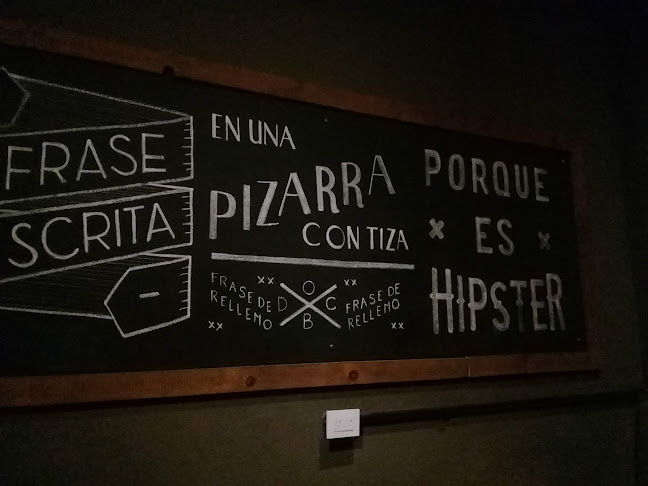 FRASE
SCRITA
EN UNA
PIZARRA
CON TIZA
FRASE DE
RELLENO
O
D C
B
FRASE DE
RELLENO
PORQUE
ES
HIPSTER